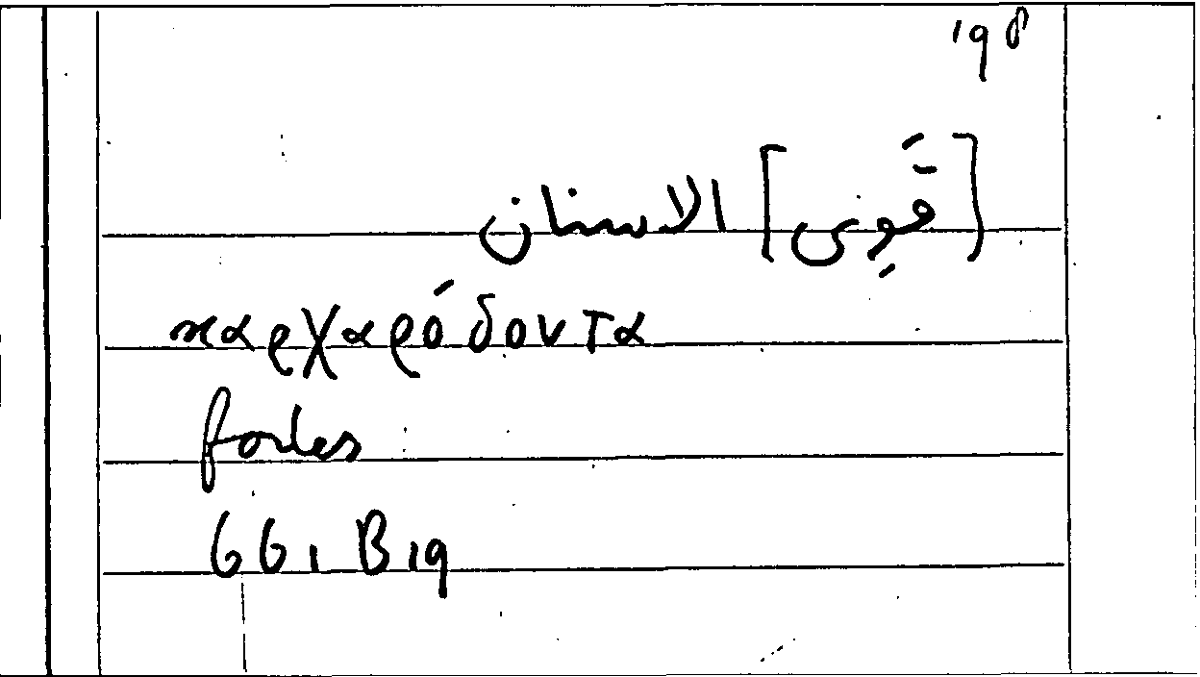 198
[قَوِى] الاسنان
καρχαρόδοντα
fortes
661 B 19